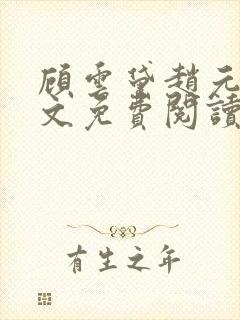 顧雲黛趙元
文免費閱讀
有生之年